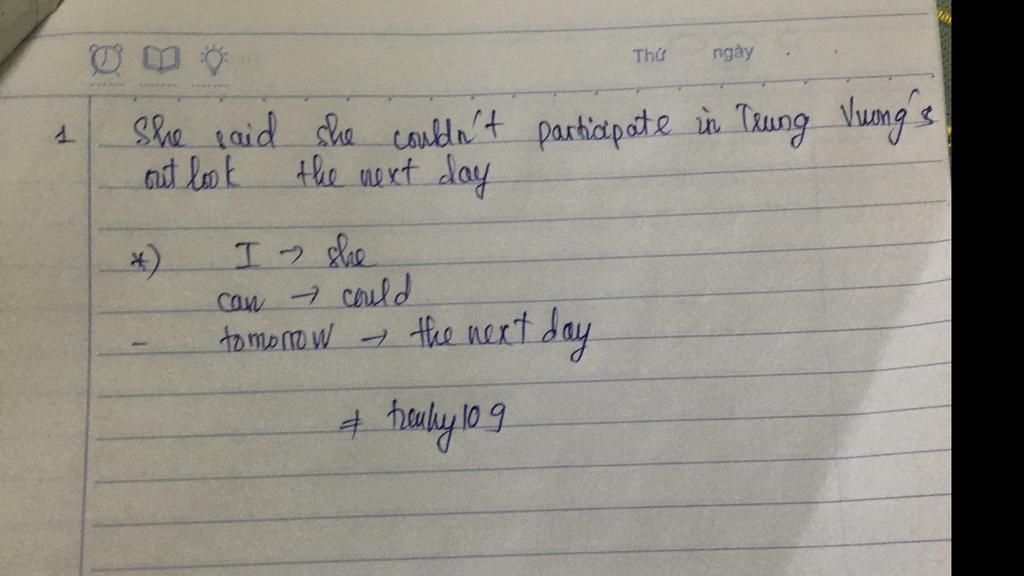 Thứ ngày
1 She said she couldn't participate in Trung Vuong's
outlook the next day
*) I → she
can → could
- tomorrow → the next day